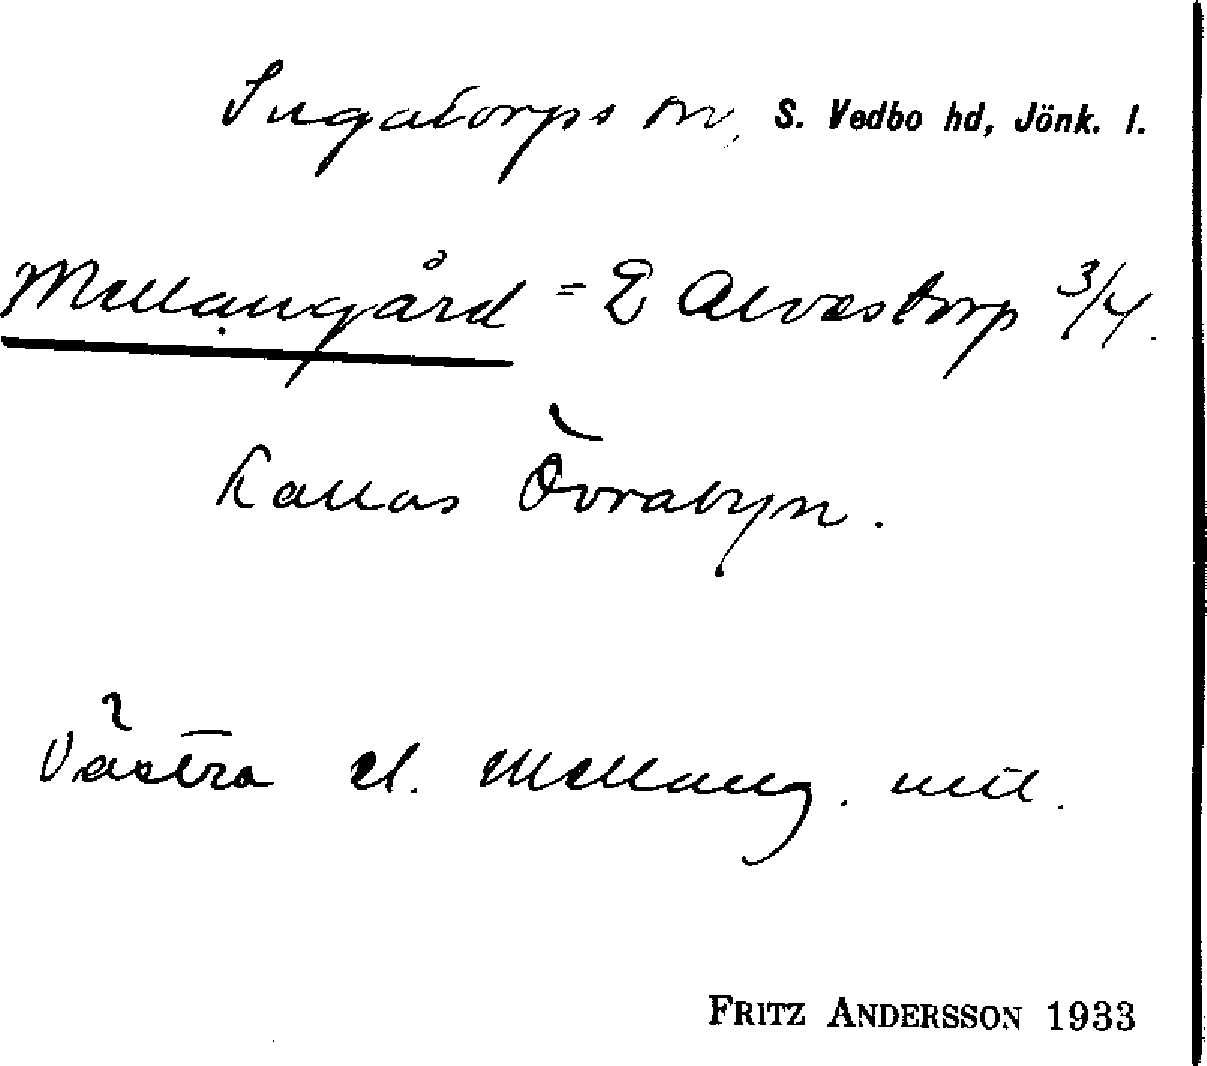 Ingatorps sn, S. Vedbo hd, Jönk. l.
Mellangård = Alvestorp 3/4.
Kallas Övrabyn.
Västra el. Mellang.
FRITZ ANDERSSON 1933